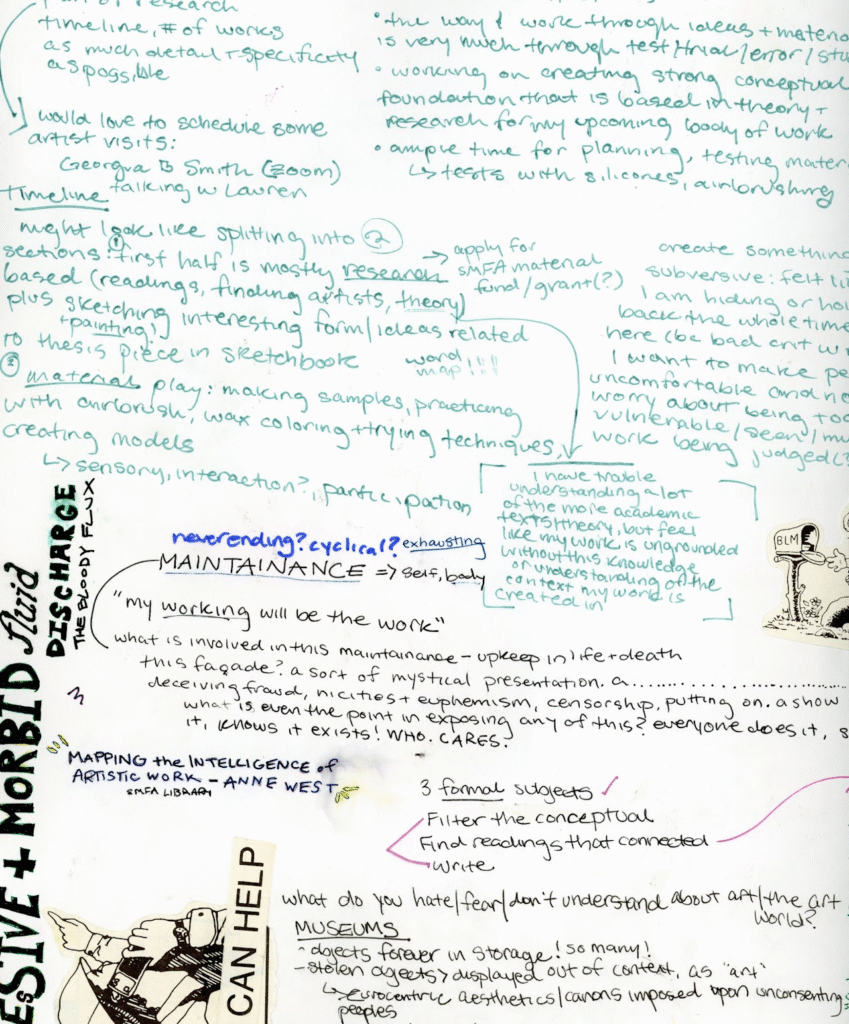 research
timeline, # of works
as much detail + specificity
as possible
would love to schedule some
artist visits:
Georgia B Smith (zoom)
talking w Lauren
• the way I work through ideas + materia
is very much through test/trial/error/stu
• working on creating strong conceptual
foundation that is based in theory +
research for my upcoming body of work
• ample time for planning, testing mater
↳ tests with silicones, airbrushing
Timeline
might look like splitting into ②
sections: ① first half is mostly research
based (readings, finding artists, theory)
plus sketching interesting form/ideas related
+ painting!
to thesis piece in sketchbook
② material play: making samples, practicing
with airbrush, wax coloring + trying techniques,
creating models
↳ sensory, interaction?, participation
→ apply for
SMFA material
fund/grant(?)
word
map!!!!
create something
subversive: felt li
I am hiding or hol
back the whole time
here (bc bad crit w
I want to make pe
uncomfortable and no
worry about being too
vulnerable/seen/mu
work being judged(?
I have trouble
understanding a lot
of the more academic
texts/theory, but feel
like my work is ungrounded
without this knowledge
or understanding of the
context my work is
created in
DISCHARGE
THE BLOODY FLUX
ESSIVE + MORBID fluid
neverending? cyclical? exhausting
MAINTAINANCE => self, body
"my working will be the work"
what is involved in this maintainance - upkeep in life + death
this façade? a sort of mystical presentation. a....................
deceiving fraud, nicities + euphemism, censorship, putting on. a show
what is even the point in exposing any of this? everyone does it, s
it, knows it exists! WHO. CARES.
BLM
MAPPING the INTELLIGENCE of
ARTISTIC WORK - ANNE WEST
SMFA LIBRARY
3 formal subjects ✓
Filter the conceptual
Find readings that connected
write
CAN HELP
what do you hate/fear/don't understand about art/the art
world?
MUSEUMS
- objects forever in storage! so many!
- stolen ojects > displayed out of context, as "art"
↳ eurocentric aesthetics/canons imposed upon unconsenting
peoples